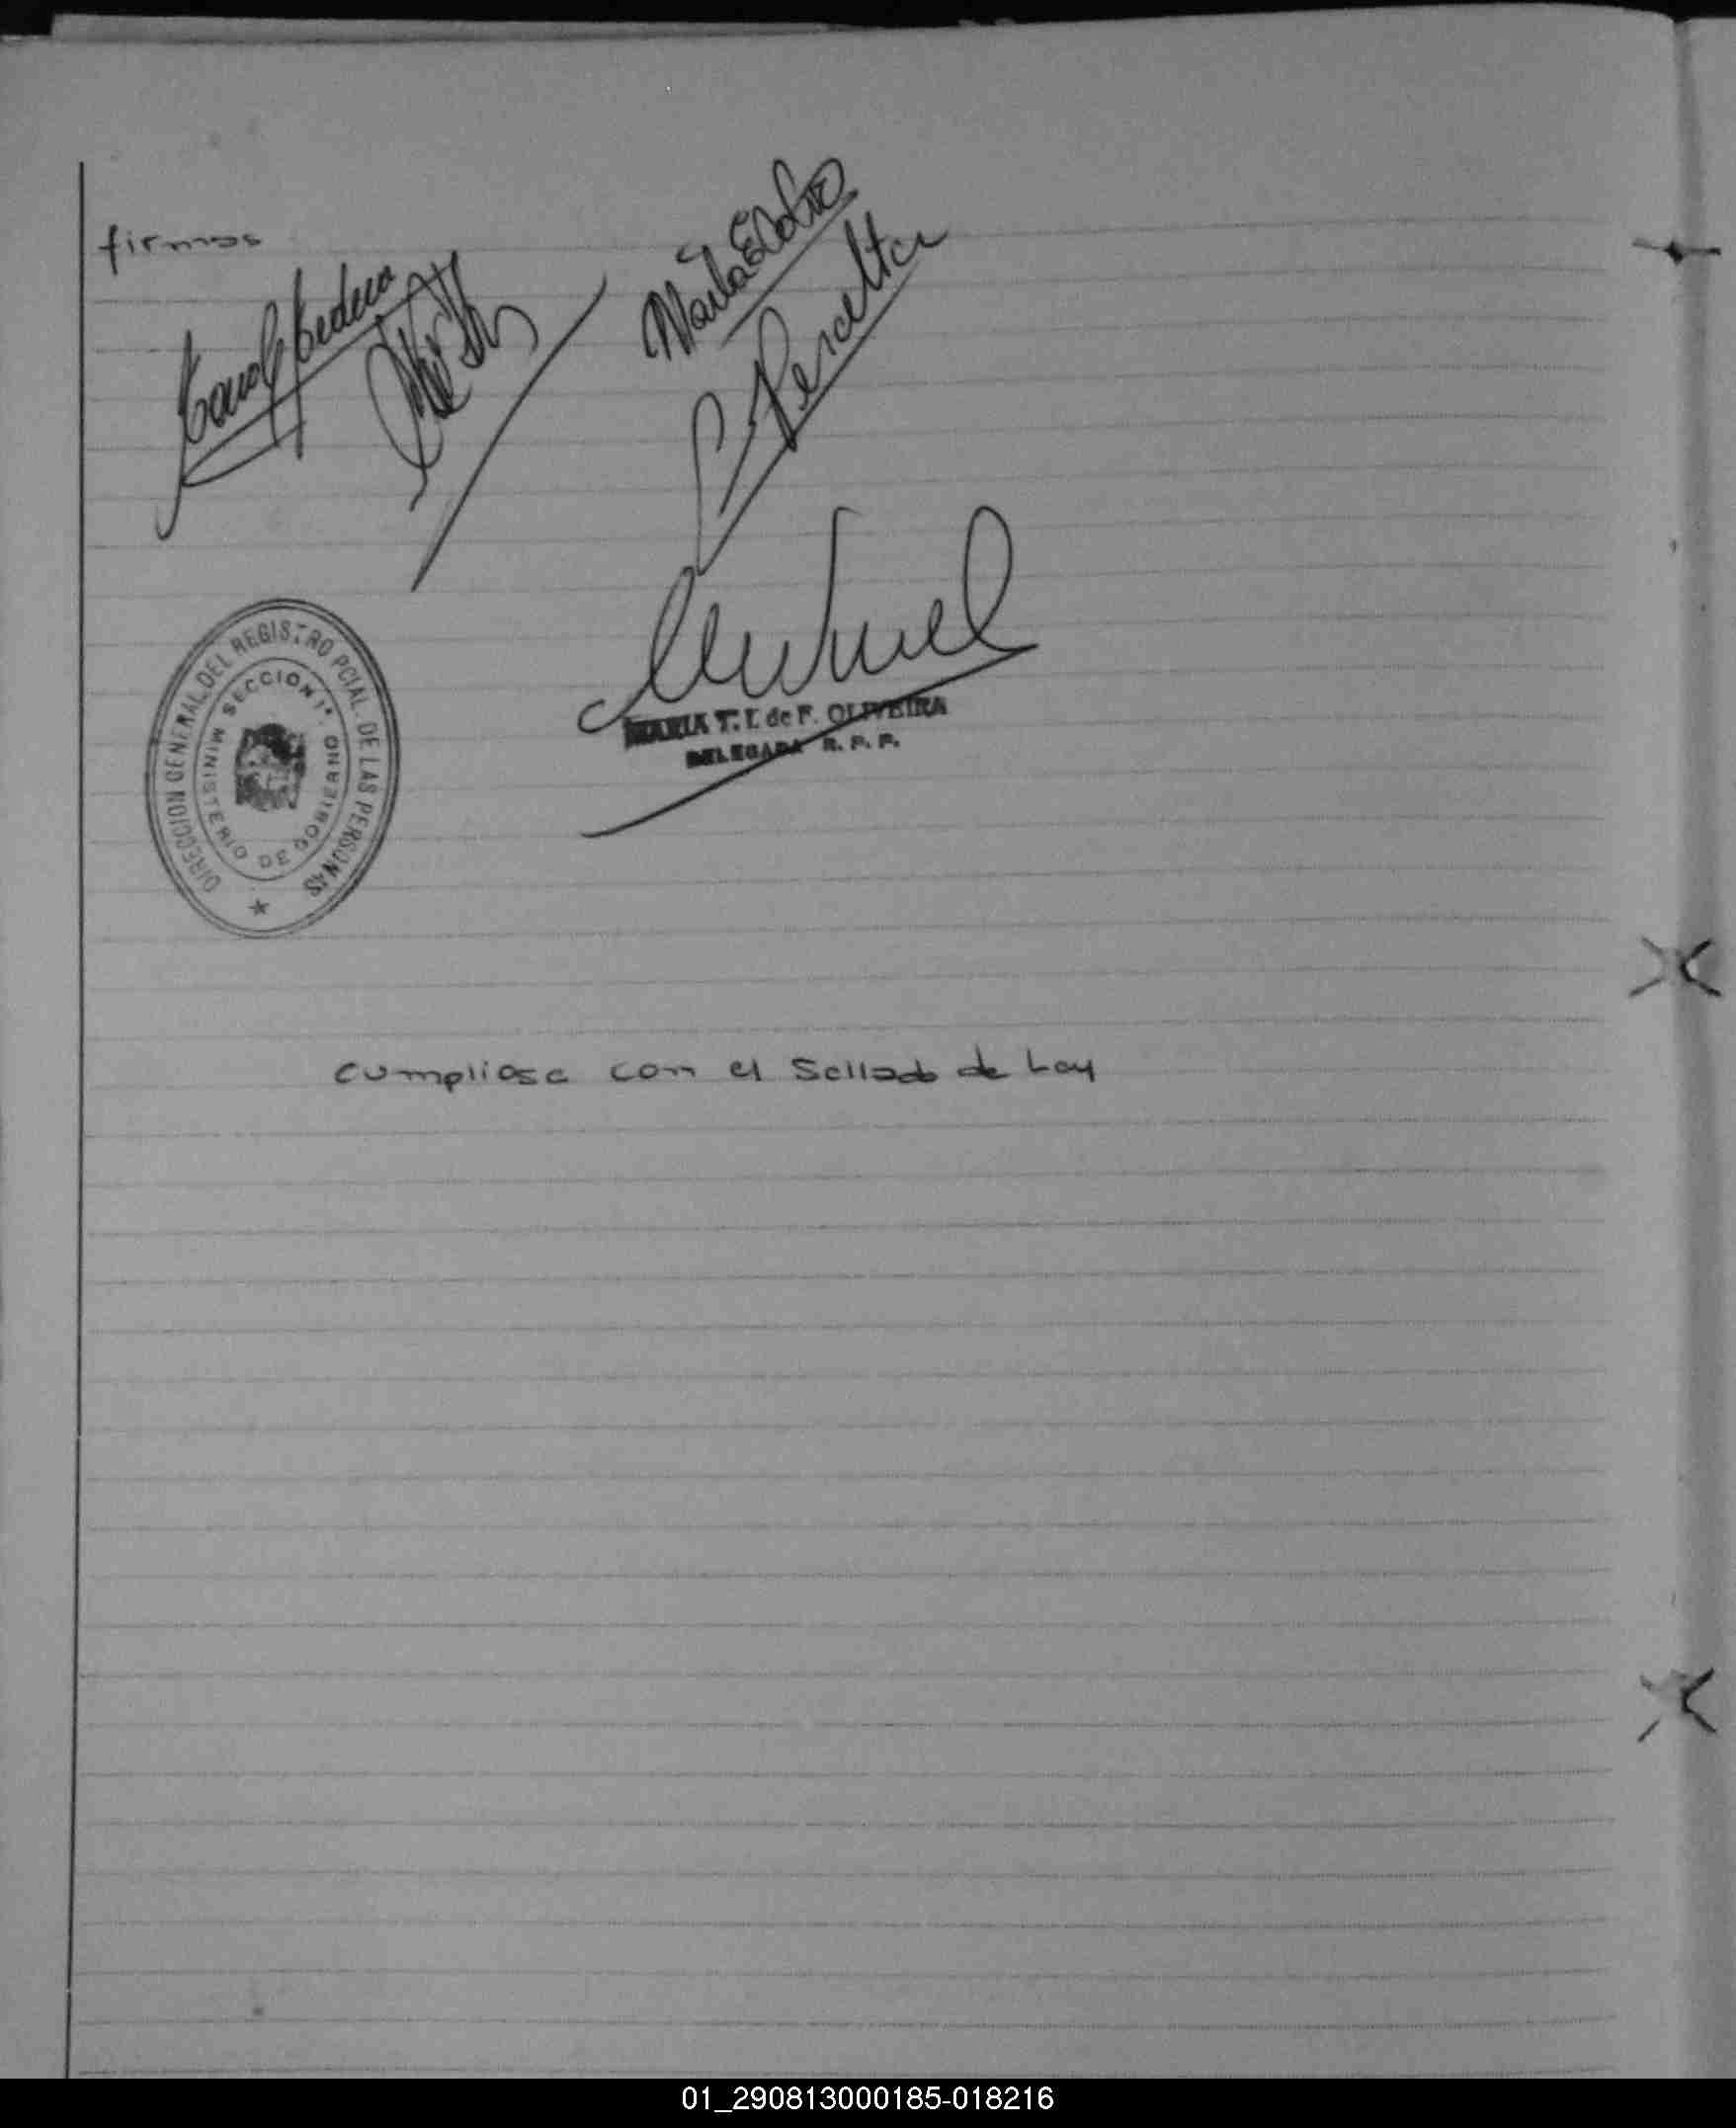 firmas
Peralta
MARIA T. I. de F. OLIVEIRA
DELEGADA R. P. P.
DIRECCION GENERAL DEL REGISTRO PCIAL. DE LAS PERSONAS
SECCION 1ª.
MINISTERIO DE GOBIERNO
Cumpliose con el Sellado de Ley
01_290813000185-018216